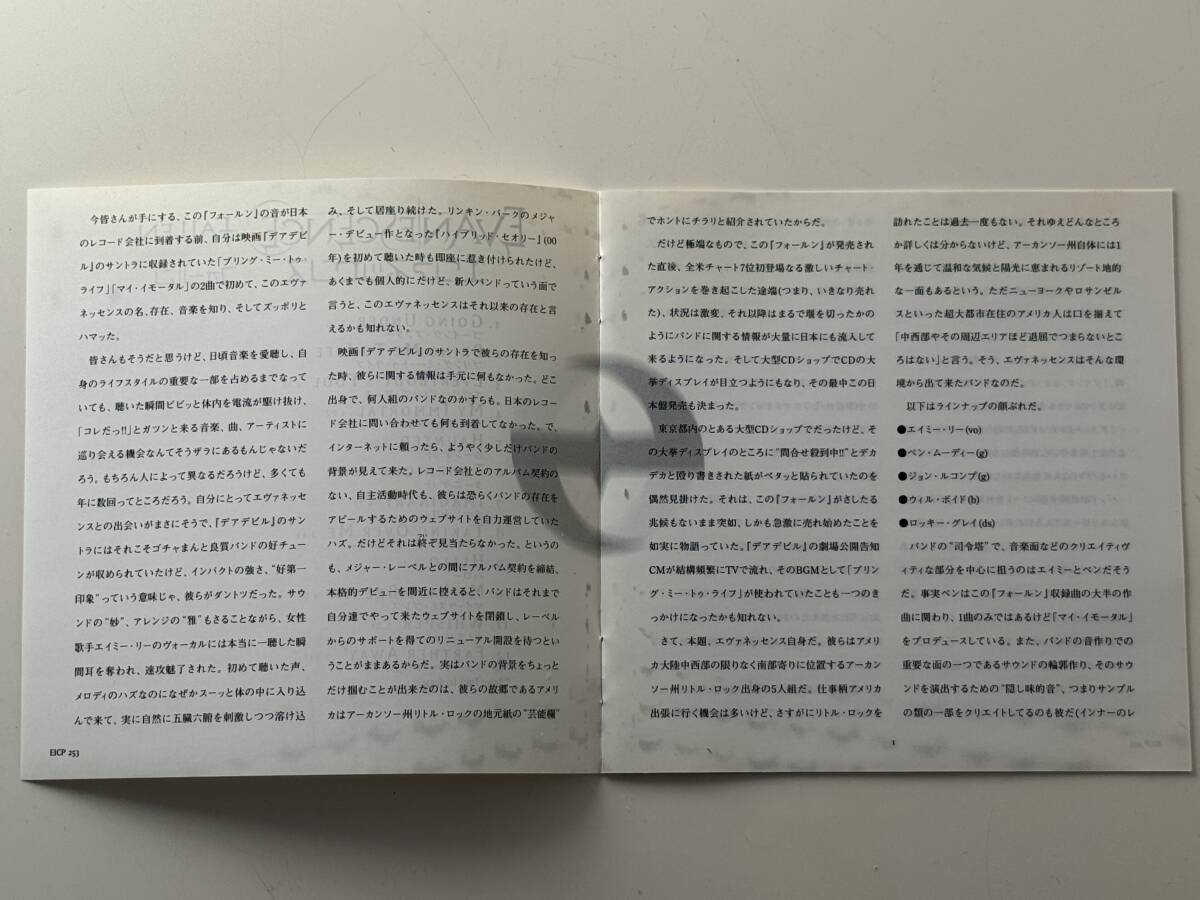 今皆さんが手にする、この『フォールン』の音が日本
のレコード会社に到着する前、自分は映画『デアデビ
ル』のサントラに収録されていた「ブリング・ミー・トゥ・
ライフ」「マイ・イモータル」の2曲で初めて、このエヴァ
ネッセンスの名、存在、音楽を知り、そしてズッポリと
ハマッた。
皆さんもそうだと思うけど、日頃音楽を愛聴し、自
身のライフスタイルの重要な一部を占めるまでなって
いても、聴いた瞬間ビビッと体内を電流が駆け抜け、
「コレだっ!!」とガツンと来る音楽、曲、アーティストに
巡り会える機会なんてそうザラにあるもんじゃないだ
ろう。もちろん人によって異なるだろうけど、多くても
年に数回ってところだろう。自分にとってエヴァネッセ
ンスとの出会いがまさにそうで、『デアデビル』のサン
トラにはそれこそゴチャまんと良質バンドの好チュー
ンが収められていたけど、インパクトの強さ、“好第一
印象”っていう意味じゃ、彼らがダントツだった。サウ
ンドの“妙”、アレンジの“雅”もさることながら、女性
歌手エイミー・リーのヴォーカルには本当に一聴した瞬
間耳を奪われ、速攻魅了された。初めて聴いた声、
メロディのハズなのになぜかスーッと体の中に入り込
んで来て、実に自然に五臓六腑を刺激しつつ溶け込
み、そして居座り続けた。リンキン・パークのメジャ
ー・デビュー作となった『ハイブリッド・セオリー』(00
年)を初めて聴いた時も即座に惹き付けられたけど、
あくまでも個人的にだけど、新人バンドっていう面で
言うと、このエヴァネッセンスはそれ以来の存在と言
えるかも知れない。
映画『デアデビル』のサントラで彼らの存在を知っ
た時、彼らに関する情報は手元に何もなかった。どこ
出身で、何人組のバンドなのかすらも。日本のレコー
ド会社に問い合わせても何も到着してなかった。で、
インターネットに頼ったら、ようやく少しだけバンドの
背景が見えて来た。レコード会社とのアルバム契約の
ない、自主活動時代も、彼らは恐らくバンドの存在を
アピールするためのウェブサイトを自力運営していた
ハズ。だけどそれは終ぞ見当たらなかった。というの
も、メジャー・レーベルとの間にアルバム契約を締結、
本格的デビューを間近に控えると、バンドはそれまで
自分達でやって来たウェブサイトを閉鎖し、レーベル
からのサポートを得てのリニューアル開設を待つとい
うことがままあるからだ。実はバンドの背景をちょっと
だけ掴むことが出来たのは、彼らの故郷であるアメリ
カはアーカンソー州リトル・ロックの地元紙の“芸能欄”
EICP 253
でホントにチラリと紹介されていたからだ。
だけど極端なもので、この『フォールン』が発売され
た直後、全米チャート7位初登場なる激しいチャート・
アクションを巻き起こした途端(つまり、いきなり売れ
た)、状況は激変、それ以降はまるで堰を切ったかの
ようにバンドに関する情報が大量に日本にも流入して
来るようになった。そして大型CDショップでCDの大
挙ディスプレイが目立つようにもなり、その最中この日
本盤発売も決まった。
東京都内のとある大型CDショップでだったけど、そ
の大挙ディスプレイのところに“問合せ殺到中!!”とデカ
デカと殴り書きされた紙がペタッと貼られていたのを
偶然見掛けた。それは、この『フォールン』がさしたる
兆候もないまま突如、しかも急激に売れ始めたことを
如実に物語っていた。『デアデビル』の劇場公開告知
CMが結構頻繁にTVで流れ、そのBGMとして「ブリン
グ・ミー・トゥ・ライフ」が使われていたことも一つのき
っかけになったかも知れない。
さて、本題、エヴァネッセンス自身だ。彼らはアメリ
カ大陸中西部の限りなく南部寄りに位置するアーカン
ソー州リトル・ロック出身の5人組だ。仕事柄アメリカ
出張に行く機会は多いけど、さすがにリトル・ロックを
訪れたことは過去一度もない。それゆえどんなところ
か詳しくは分からないけど、アーカンソー州自体には1
年を通じて温和な気候と陽光に恵まれるリゾート地的
な一面もあるという。ただニューヨークやロサンゼル
スといった超大都市在住のアメリカ人は口を揃えて
「中西部やその周辺エリアほど退屈でつまらないとこ
ろはない」と言う。そう、エヴァネッセンスはそんな環
境から出て来たバンドなのだ。
以下はラインナップの顔ぶれだ。
●エイミー・リー(vo)
●ベン・ムーディー(g)
●ジョン・ルコンプ(g)
●ウィル・ボイド(b)
●ロッキー・グレイ(ds)
バンドの“司令塔”で、音楽面などのクリエイティヴ
ィティな部分を中心に担うのはエイミーとベンだそう
だ。事実ベンはこの『フォールン』収録曲の大半の作
曲に関わり、1曲のみではあるけど「マイ・イモータル」
をプロデュースしている。また、バンドの音作りでの
重要な面の一つであるサウンドの輪郭作り、そのサウ
ンドを演出するための“隠し味的音”、つまりサンプル
の類の一部をクリエイトしてるのも彼だ(インナーのレ
1